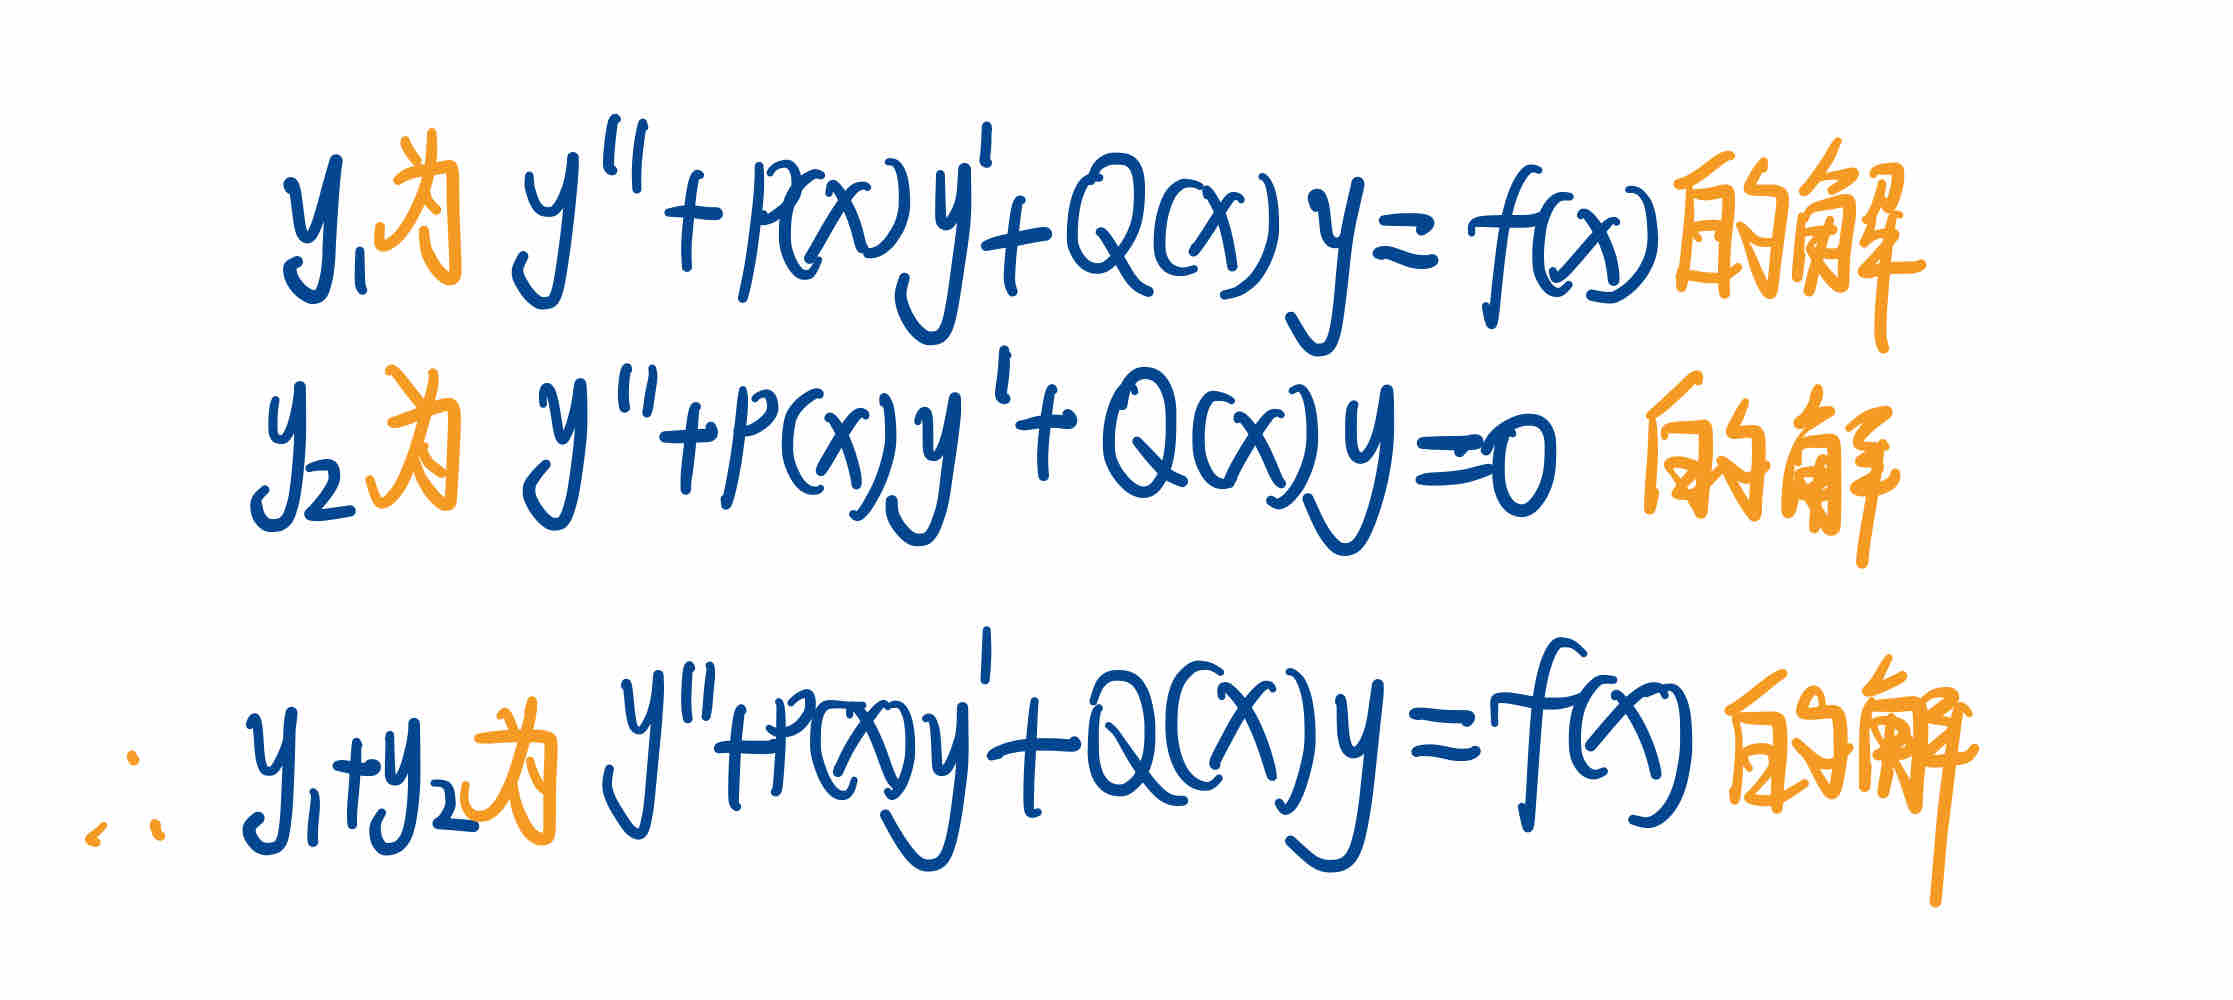 y₁为 y''+p(x)y'+Q(x)y=f(x)的解
y₂为 y''+p(x)y'+Q(x)y=0 的解
∴ y₁+y₂为 y''+p(x)y'+Q(x)y=f(x)的解